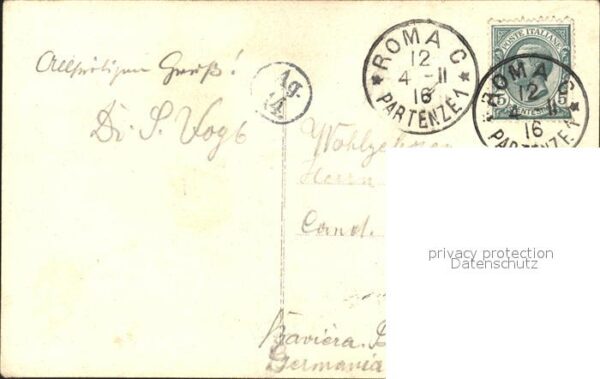 Allseitigen Gruß!
Dr. S. Vogt
Ag.
14
ROMA C
12
4-II
16
PARTENZE 1
POSTE ITALIANE
ROMA C
12
4-II
16
PARTENZE 1
Wohlgeboren
Herrn
Cand.
Bavièra
Germania
privacy protection
Datenschutz